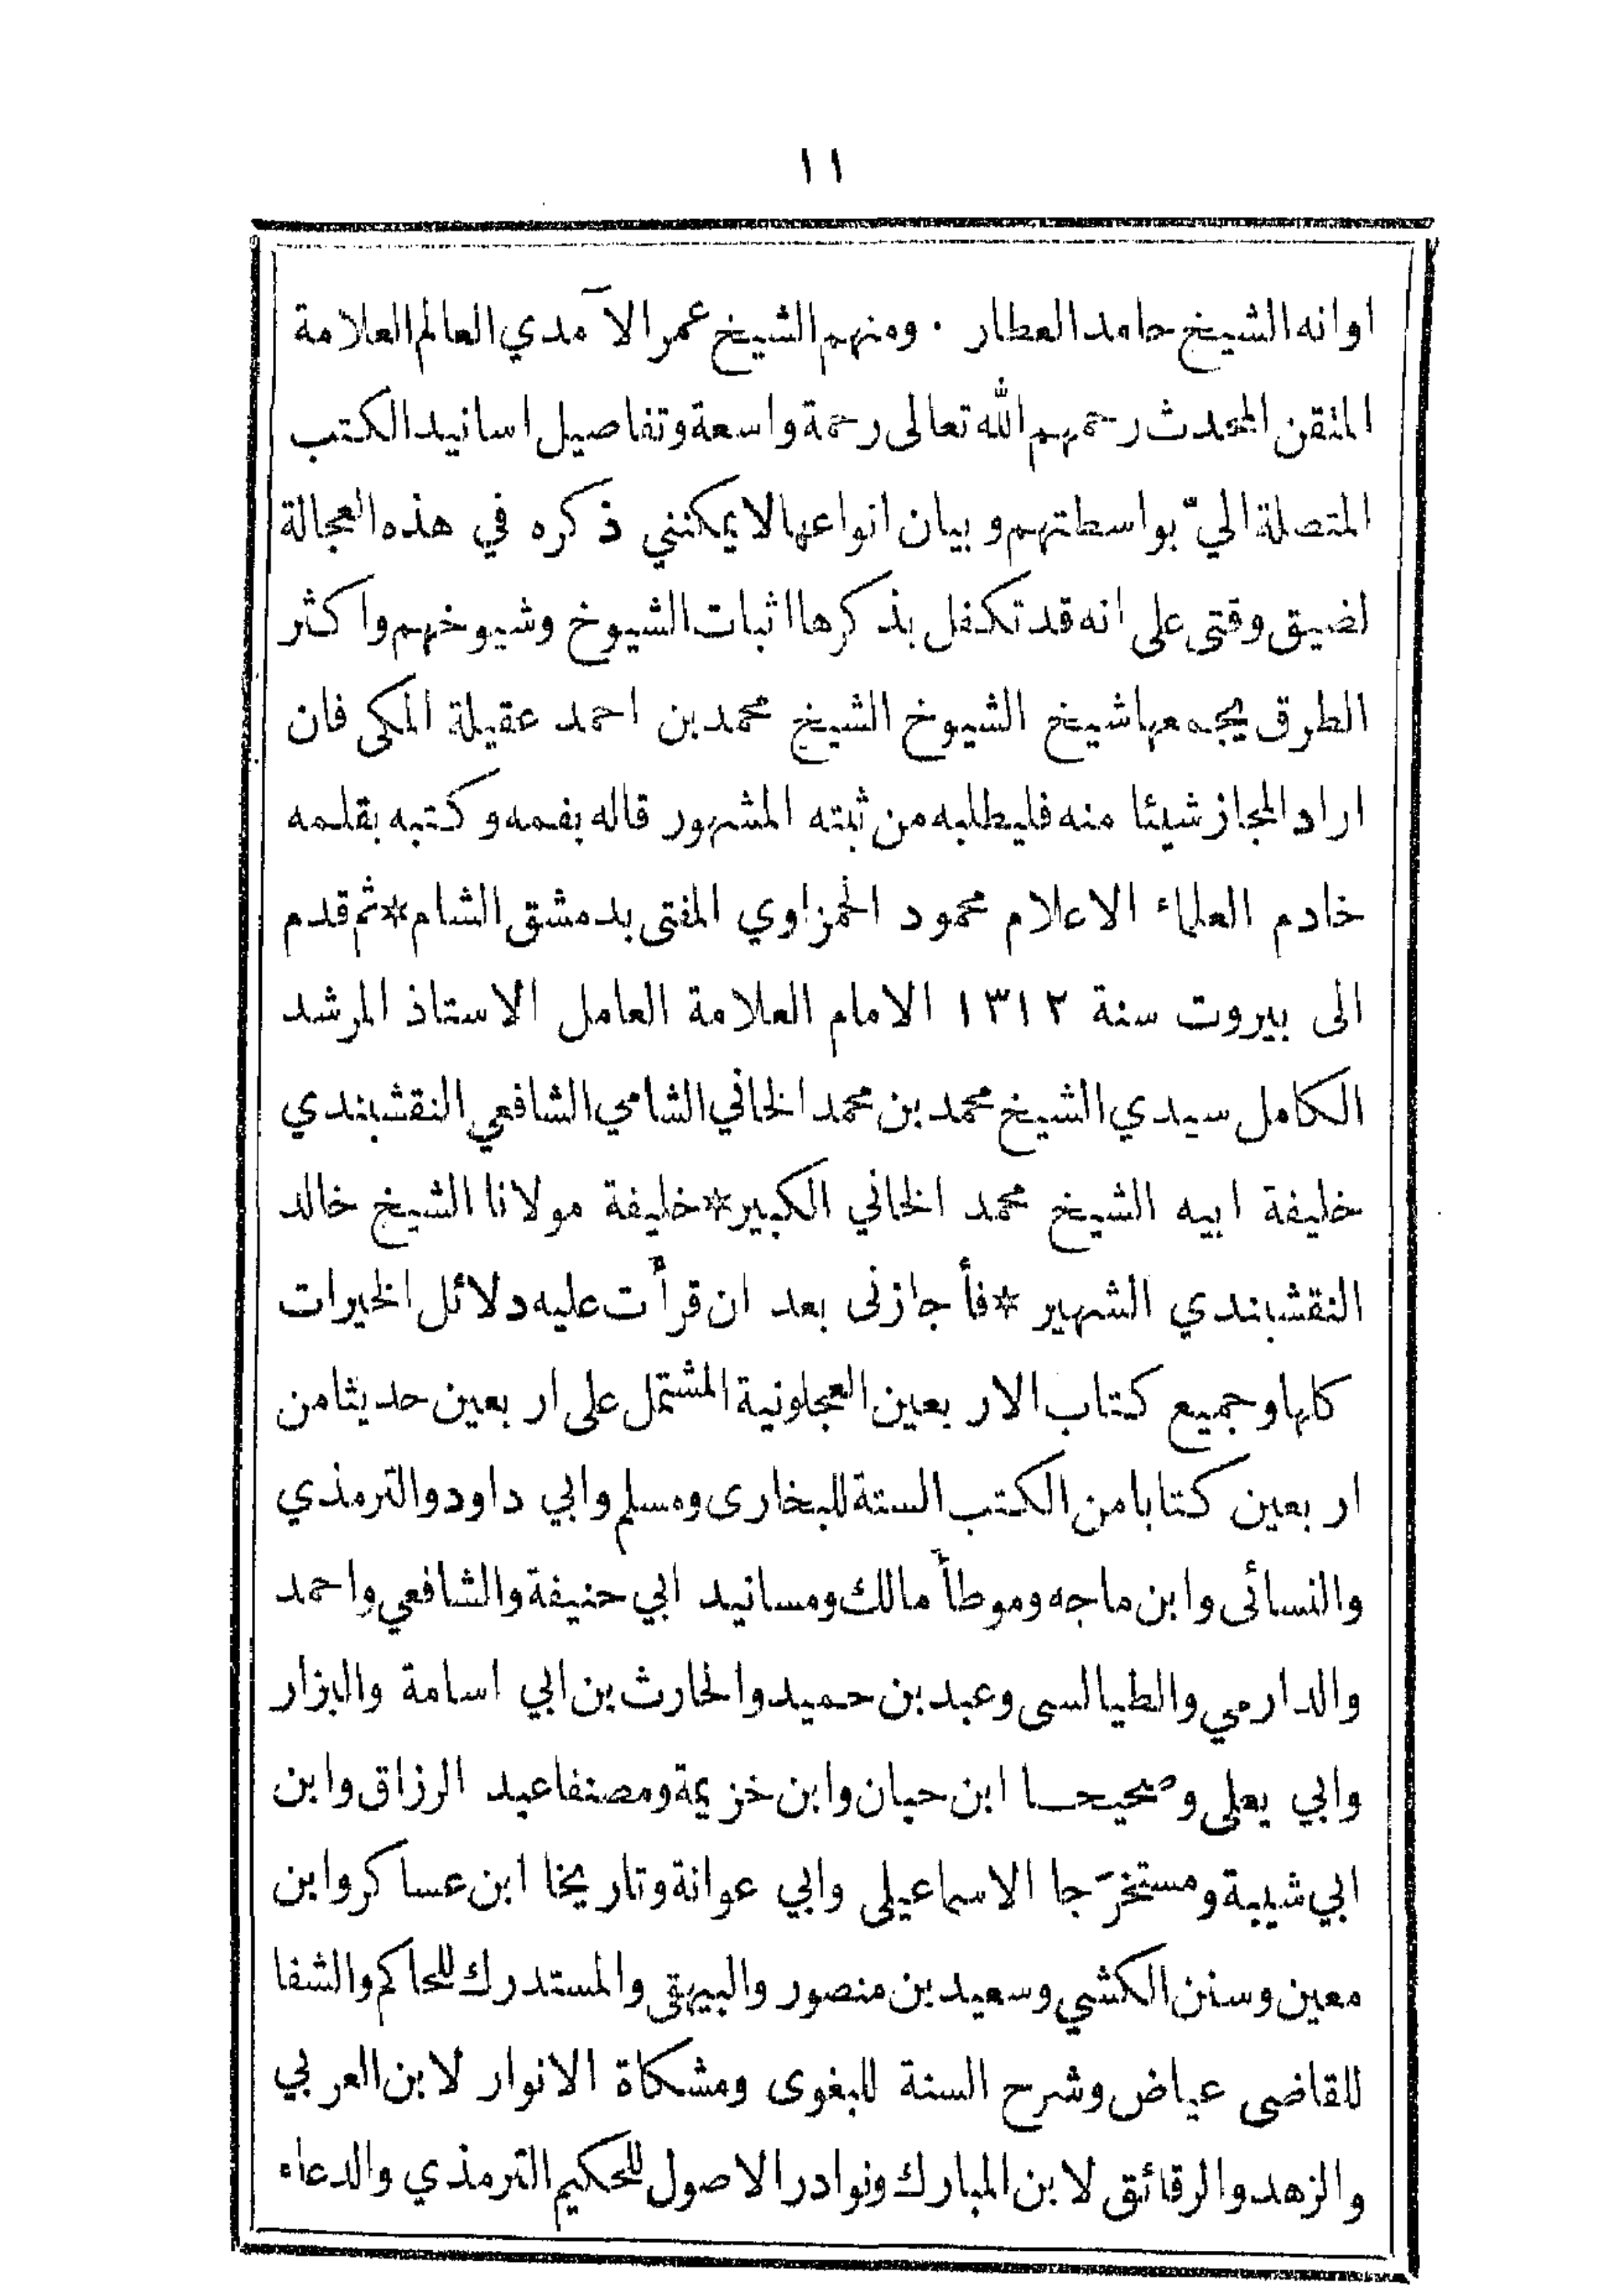 ١١
اوانه الشيخ حامد العطار . ومنهم الشيخ عمر الآمدي العالم العلامة
المتقن المحدث رحمهم الله تعالى رحمة واسعة وتفاصيل اسانيد الكتب
المتصلة اليّ بواسطتهم وبيان انواعها لا يمكنني ذكره في هذه العجالة
لضيق وقتى على انه قد تكفل بذكرها اثبات الشيوخ وشيوخهم واكثر
الطرق يجمعها شيخ الشيوخ الشيخ محمد بن احمد عقيلة المكى فان
اراد المجاز شيئا منه فليطلبه من ثبته المشهور قاله بفمه وكتبه بقلمه
خادم العلماء الاعلام محمود الحمزاوي المفتى بدمشق الشام * ثم قدم
الى بيروت سنة ١٣١٢ الامام العلامة العامل الاستاذ المرشد
الكامل سيدي الشيخ محمد بن محمد الخاني الشامي الشافعي النقشبندي
خليفة ابيه الشيخ محمد الخاني الكبير * خليفة مولانا الشيخ خالد
النقشبندي الشهير * فأجازنى بعد ان قرأت عليه دلائل الخيرات
كلها وجميع كتاب الاربعين العجلونية المشتمل على اربعين حديثا من
اربعين كتابا من الكتب الستة للبخارى ومسلم وابي داود والترمذي
والنسائى وابن ماجه وموطأ مالك ومسانيد ابي حنيفة والشافعي واحمد
والدارمي والطيالسى وعبد بن حميد والحارث بن ابي اسامة والبزار
وابي يعلى وصحيحا ابن حبان وابن خزيمة ومصنفا عبد الرزاق وابن
ابي شيبة ومستخرَجا الاسماعيلى وابي عوانة وتاريخا ابن عساكر وابن
معين وسنن الكشي وسعيد بن منصور والبيهقى والمستدرك للحاكم والشفا
للقاضى عياض وشرح السنة للبغوى ومشكاة الانوار لابن العربي
والزهد والرقائق لابن المبارك ونوادر الاصول للحكيم الترمذي والدعاء